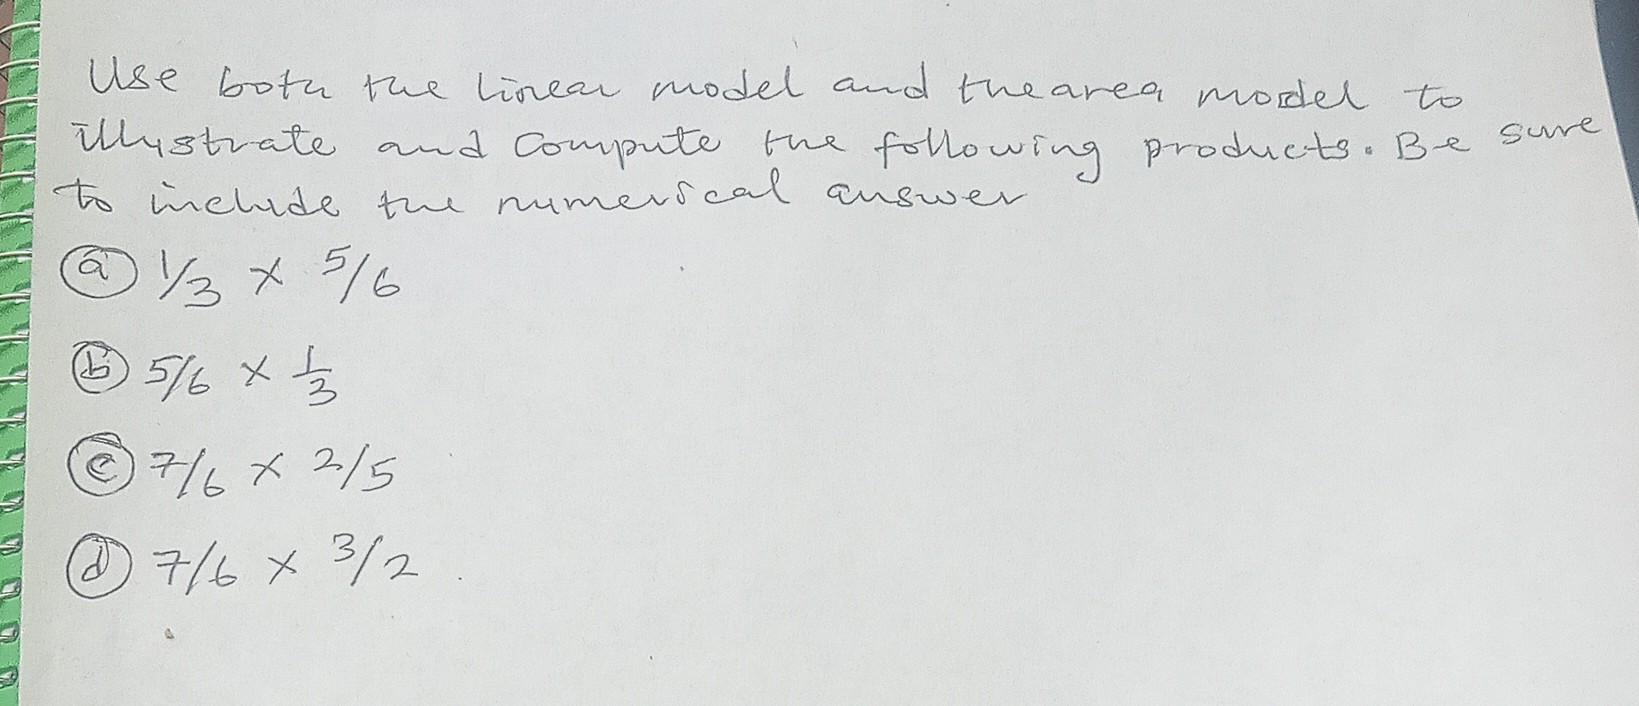 Use both the linear model and the area model to
illustrate and compute the following products. Be sure
to include the numerical answer
(a) 1/3 × 5/6
(b) 5/6 × 1/3
(c) 7/6 × 2/5
(d) 7/6 × 3/2